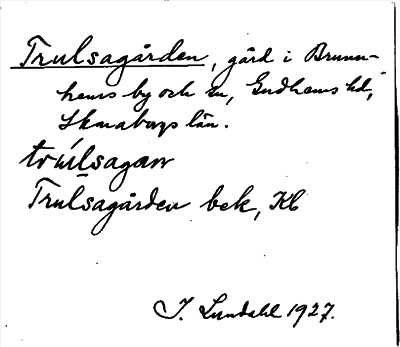 Trulsagården, gård i Brunn-
hems by och sn, Gudhems hd,
Skaraborgs län.
trulsagan
Trulsagården bek, Kb
I. Lundahl 1927.